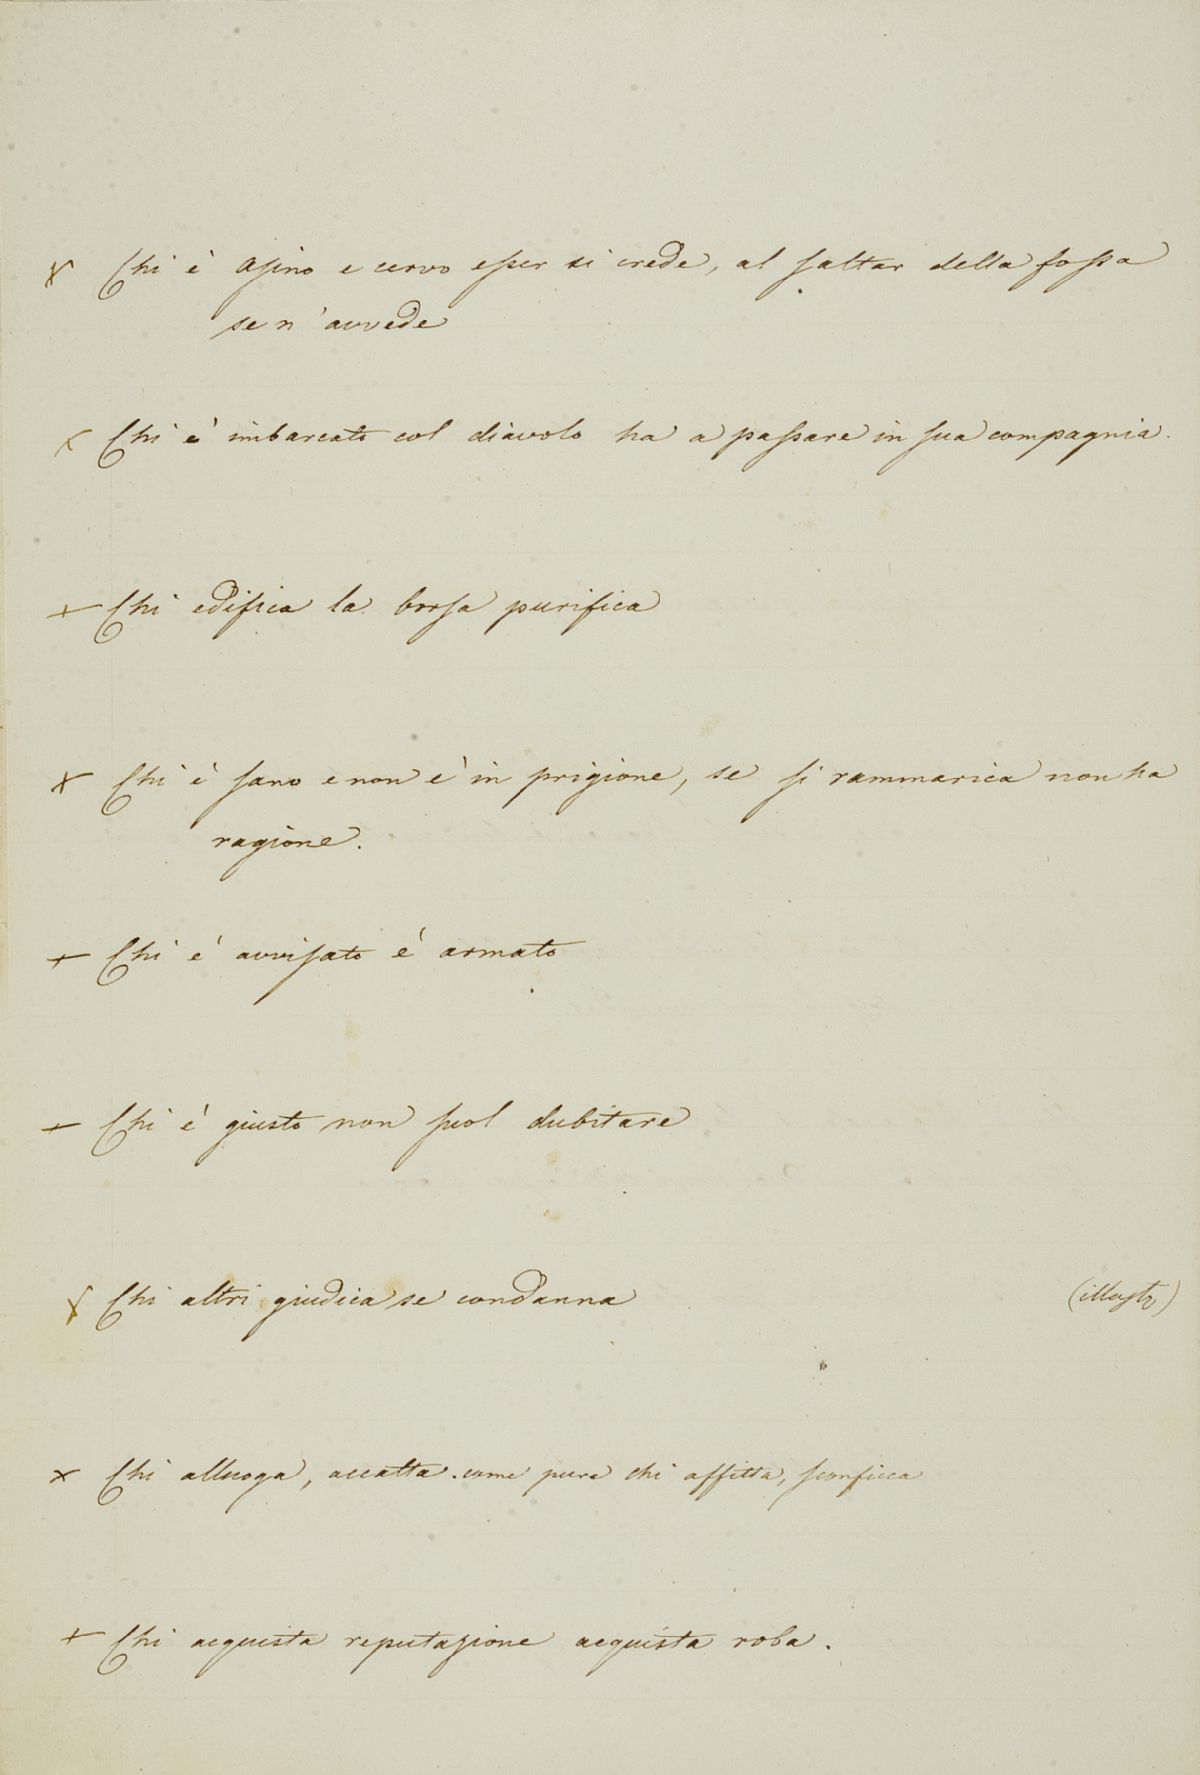 x Chi è Asino e cervo esser si crede, al saltar della fossa
se n'avvede
x Chi è imbarcato col diavolo ha a passare in sua compagnia.
+ Chi edifica la borsa purifica
x Chi è sano e non è in prigione, se si rammarica non ha
ragione.
+ Chi è avvisato è armato
+ Chi è giusto non suol dubitare
x Chi altri giudica se condanna (illustr)
x Chi alluoga, accatta. come pure chi affitta, sconficca
+ Chi acquista reputazione acquista roba.